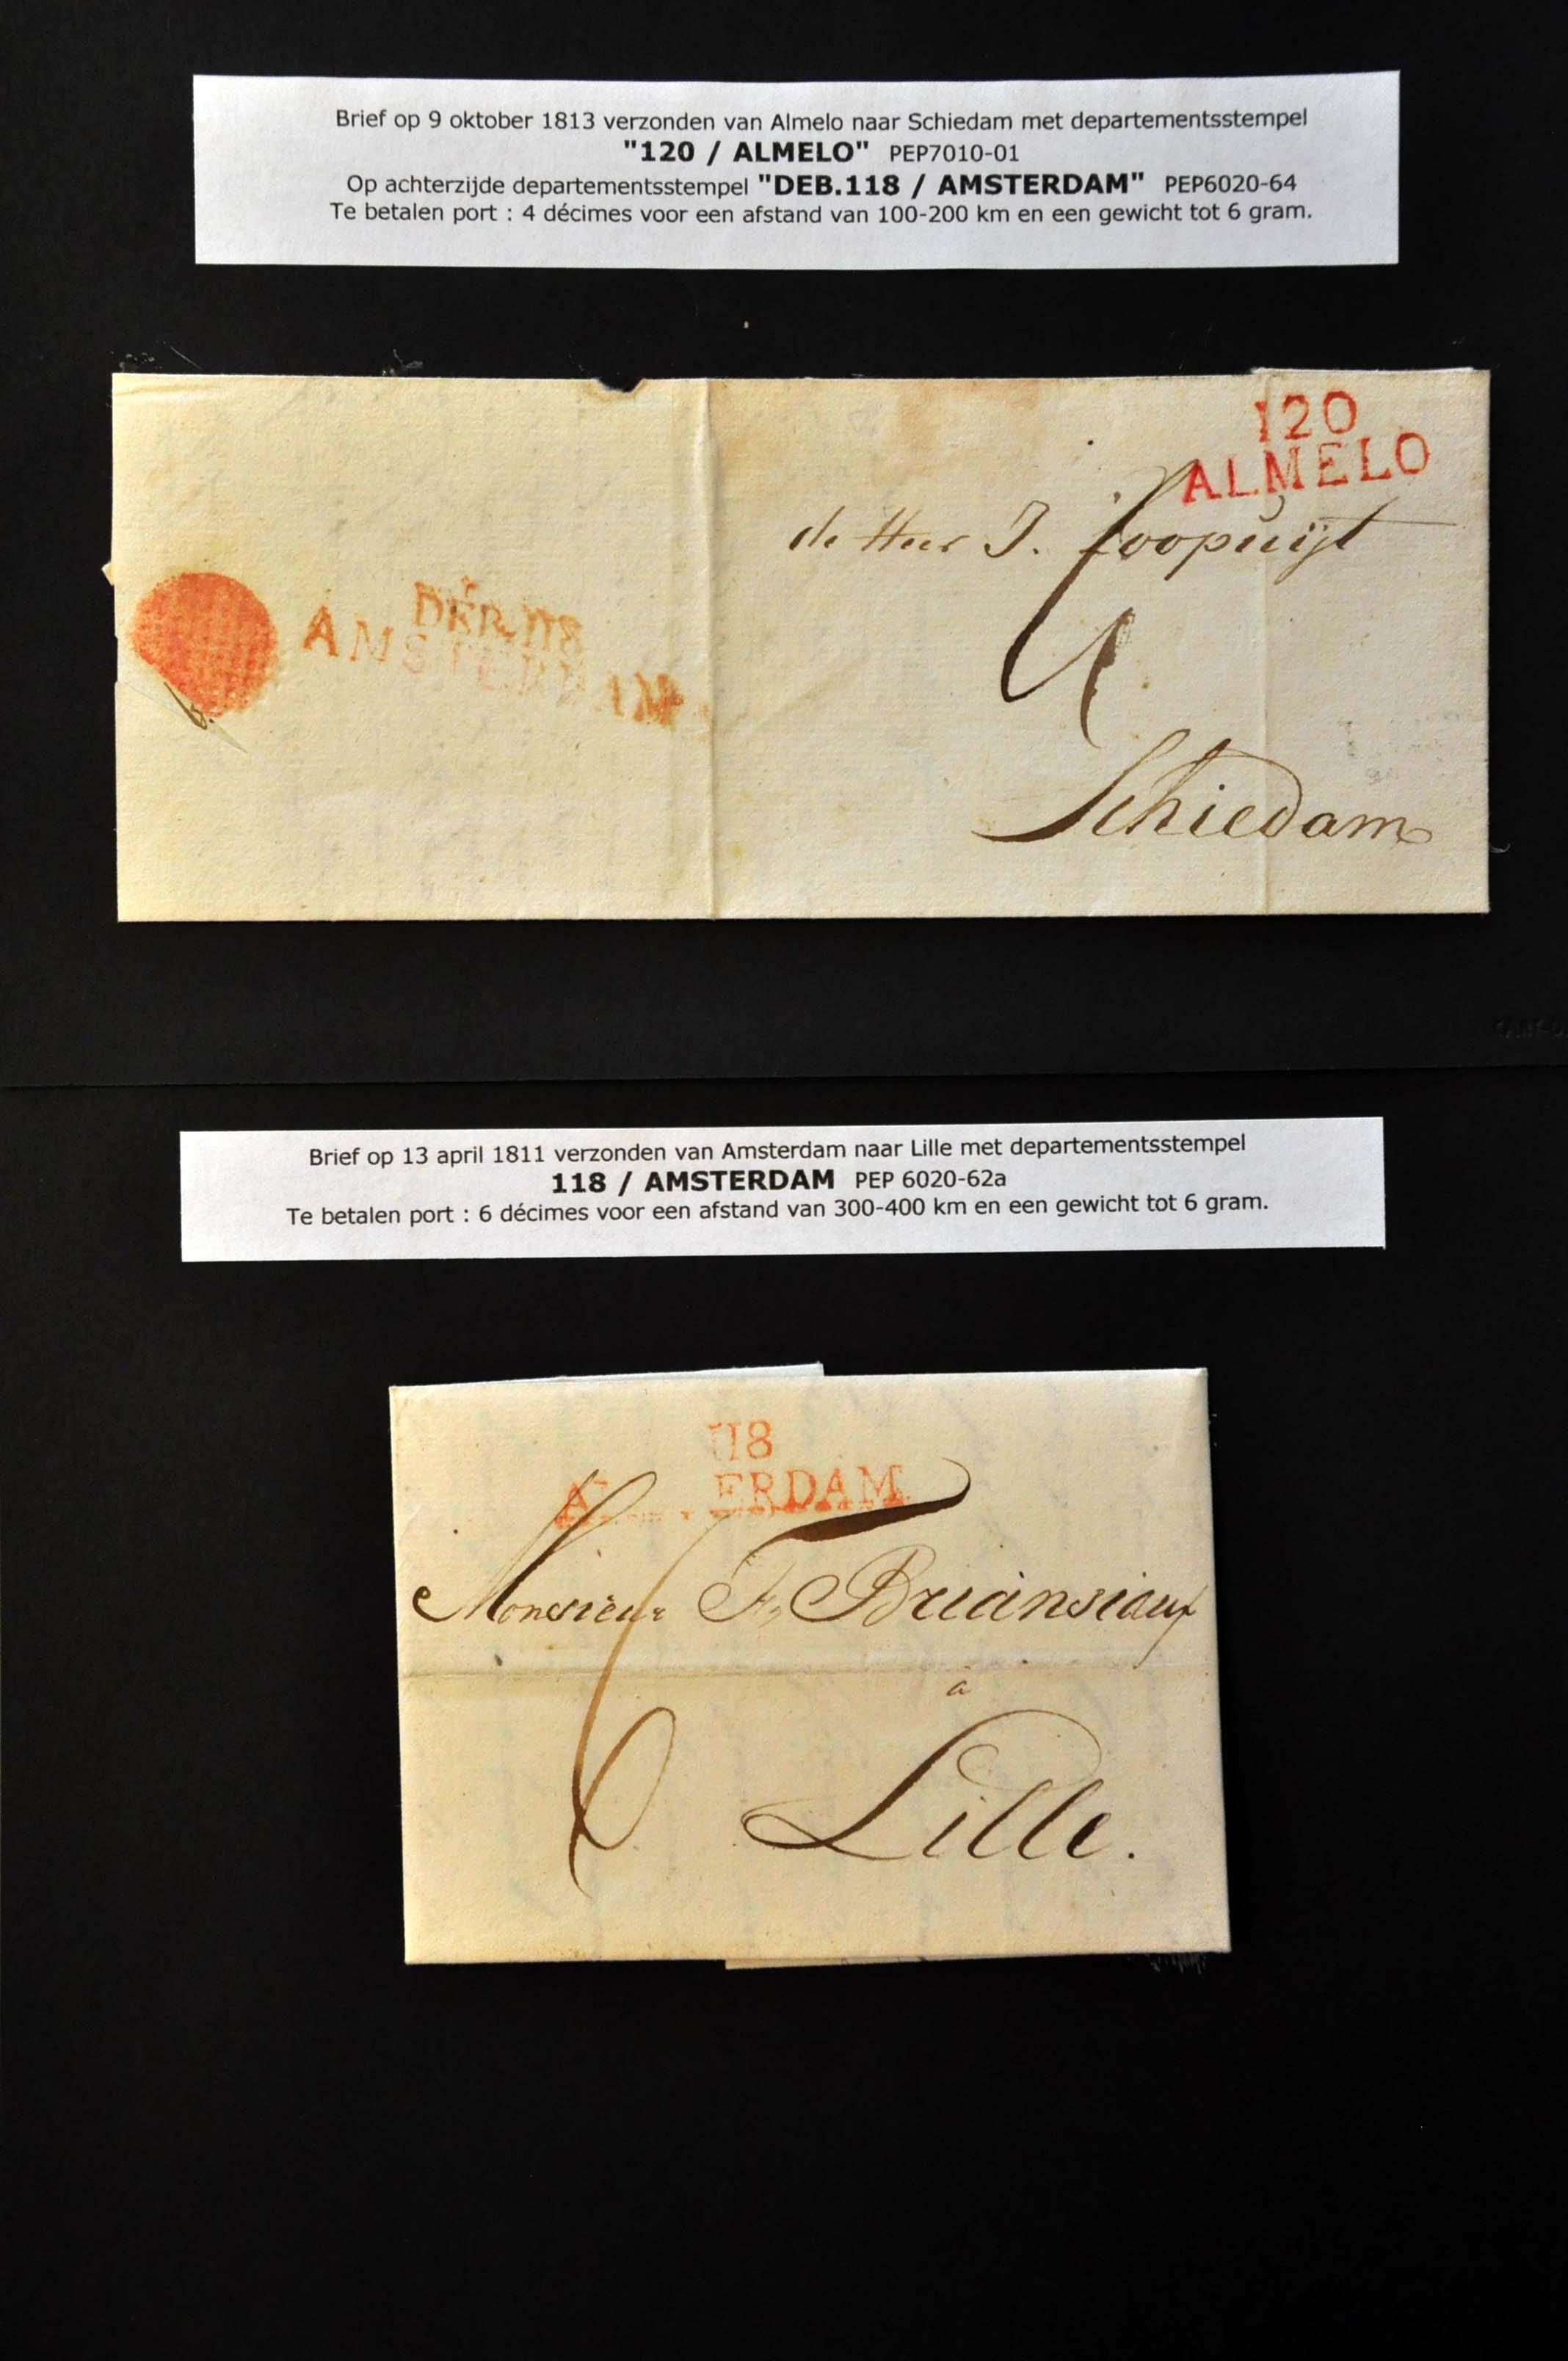 Brief op 9 oktober 1813 verzonden van Almelo naar Schiedam met departementsstempel
"120 / ALMELO" PEP7010-01
Op achterzijde departementsstempel "DEB.118 / AMSTERDAM" PEP6020-64
Te betalen port : 4 décimes voor een afstand van 100-200 km en een gewicht tot 6 gram.
120
ALMELO
de Heer J. Loopuijt
4
DEB.118
AMSTERDAM
Schiedam
Brief op 13 april 1811 verzonden van Amsterdam naar Lille met departementsstempel
118 / AMSTERDAM PEP 6020-62a
Te betalen port : 6 décimes voor een afstand van 300-400 km en een gewicht tot 6 gram.
118
A ERDAM
Monsieur F.
à
6
Lille.